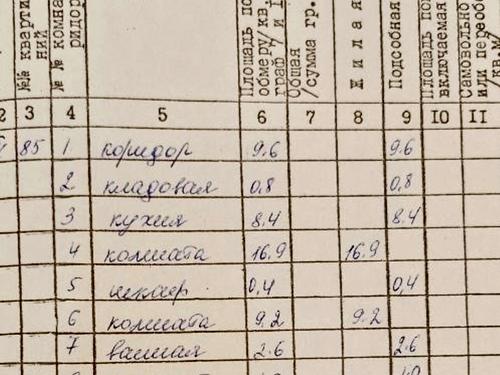 №№ кварти
ний
№ № комна
ридор
Площадь по
обмеру/кв.
граф
Общая
/сумма гр.
Жилая
Подсобная
Площадь
включаемая
Самовольно
или переобо
/кв.м/
2 3 4 5 6 7 8 9 10 11
85 1 коридор 9.6 9.6
2 кладовая 0,8 0,8
3 кухня 8.4 8.4
4 комната 16.9 16.9
5 шкаф 0,4 0,4
6 комната 9.2 9.2
7 ванная 2.6 2.6